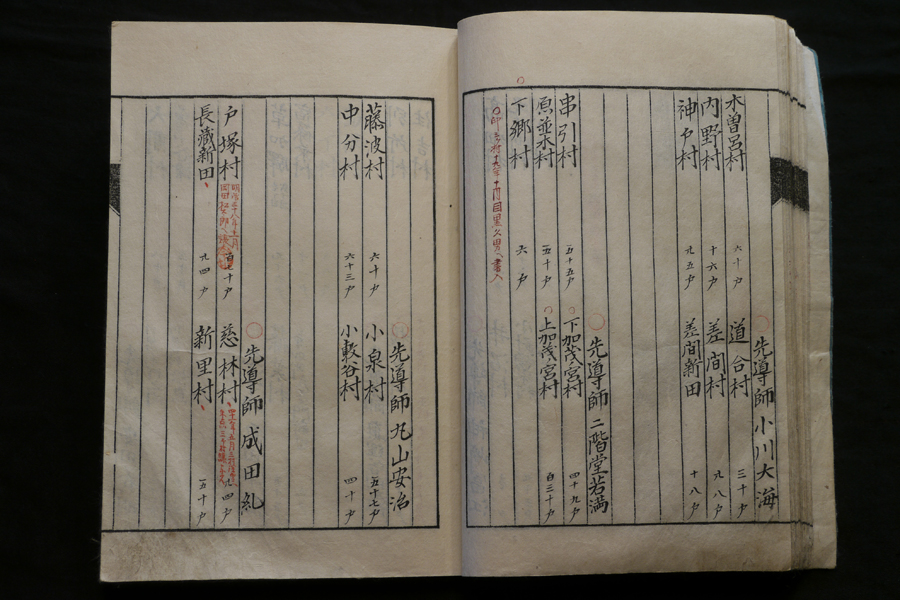 ○先導師 小川大海
木曽呂村 六十戸 道合村 三十戸
内野村 十六戸 差間村 九八戸
神戸村 九五戸 差間新田 十八戸
○先導師 二階堂若満
串引村 五十五戸 ○下加茂宮村 四十九戸
原並木村 五十戸 ○上加茂宮村 百三十戸
○下郷村 六戸
○先導師 丸山安治
藤波村 六十戸 小泉村 五十七戸
中分村 六十三戸 小敷谷村 四十戸
○先導師 成田糺
戸塚村 百七十戸 慈林村 九四戸
長蔵新田 九四戸 新里村 五十戸